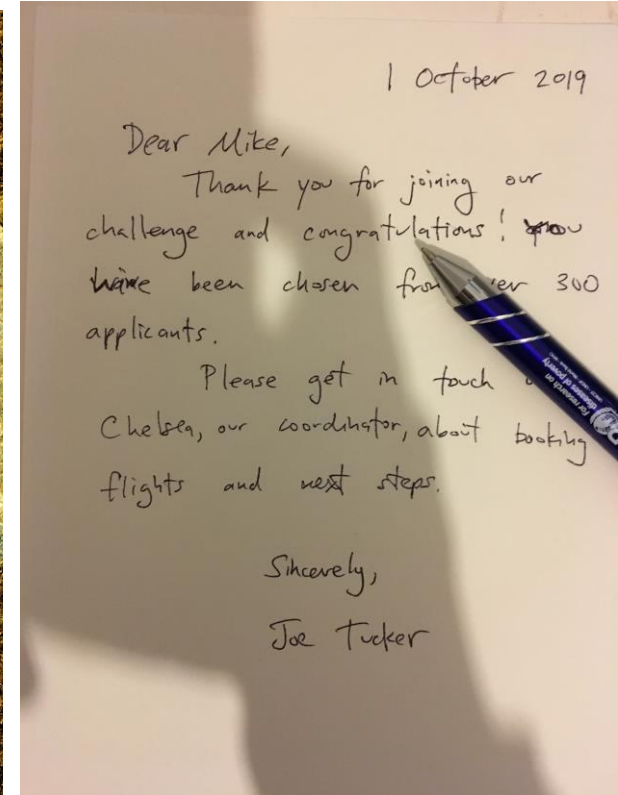 1 October 2019
Dear Mike,
Thank you for joining our
challenge and congratulations! you
have been chosen from 300
applicants.
Please get in touch
Chelsea, our coordinator, about booking
flights and next steps.
Sincerely,
Joe Tucker
For research on
diseases of poverty